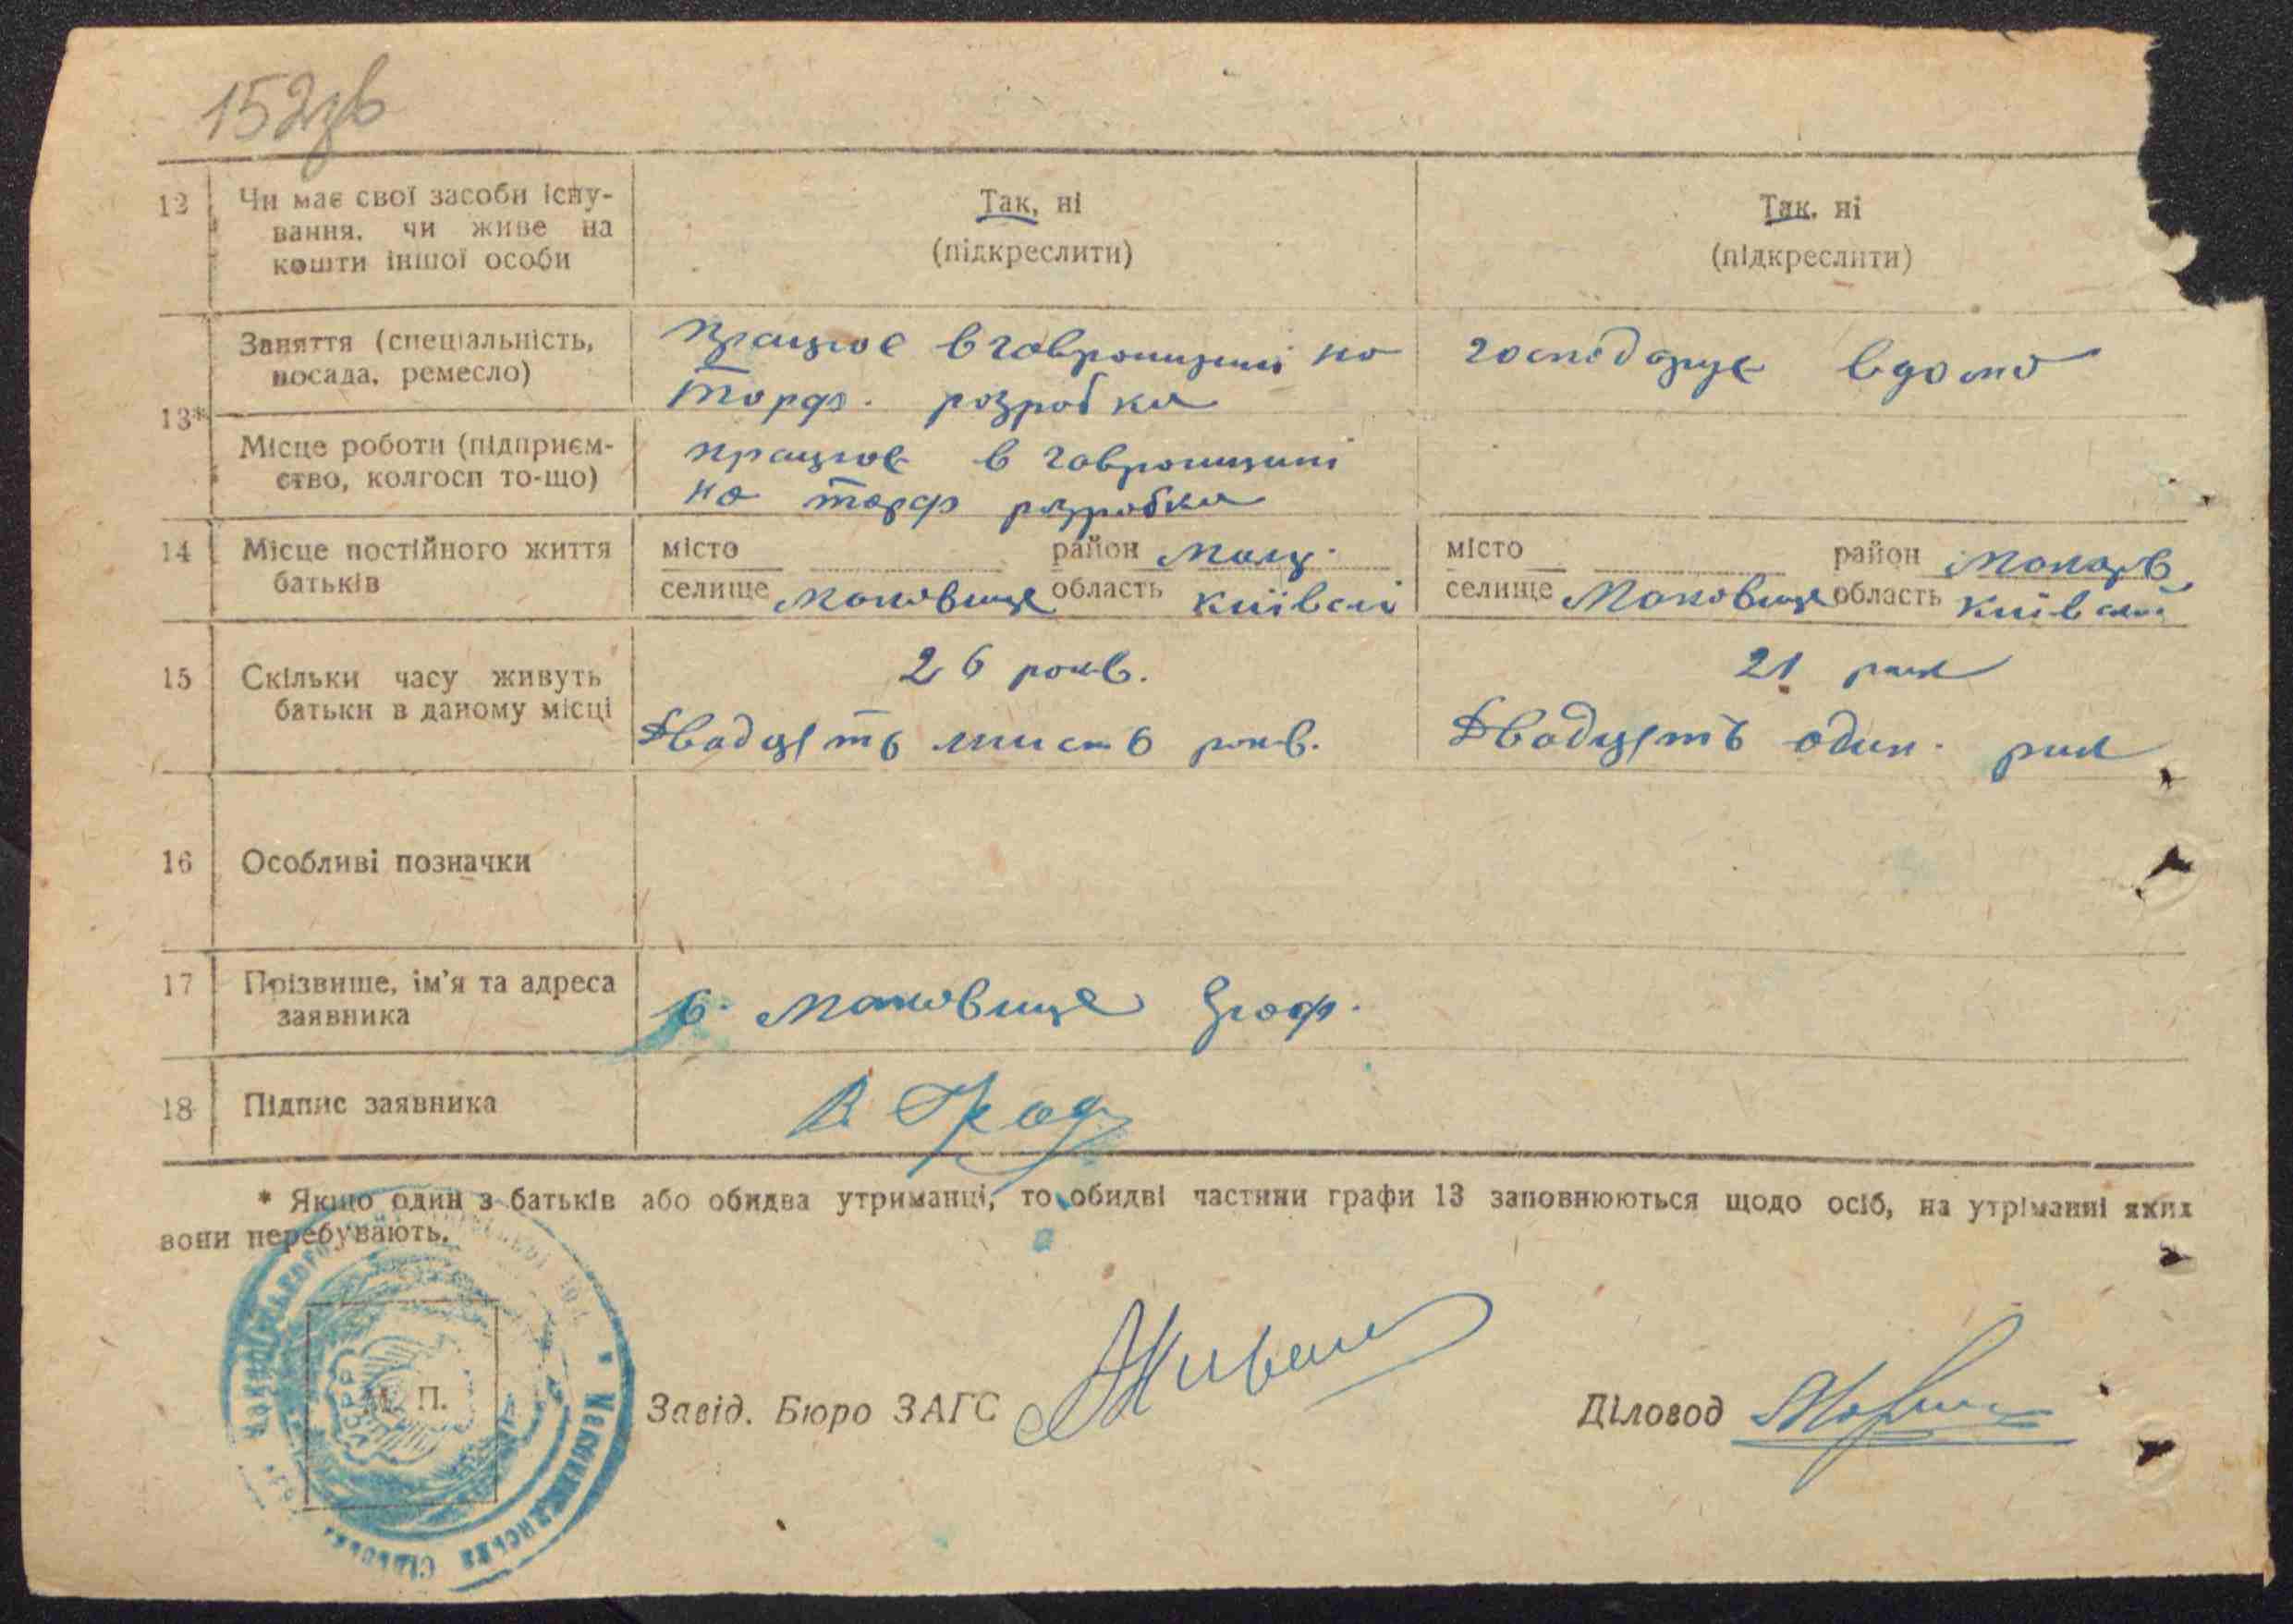 152зв
12 Чи має свої засоби існу-
вання, чи живе на
кошти іншої особи
Так, ні
(підкреслити)
Так, ні
(підкреслити)
13*
Заняття (спеціальність,
посада, ремесло)
працює в гавронщині на
торф. розробки
господарує вдома
Місце роботи (підприєм-
ство, колгосп то-що)
працює в гавронщині
на торф розробки
14 Місце постійного життя
батьків
місто район Мак.
селище Маковище область Київскі
місто район Макарів
селище Маковище область Київскій
15 Скільки часу живуть
батьки в даному місці
26 років.
Двадцять шисть років.
21 рик
Двадцять один. рик
16 Особливі позначки
17 Прізвище, ім’я та адреса
заявника
с. Маковище
18 Підпис заявника
* Якщо один з батьків або обидва утриманці, то обидві частини графи 13 заповнюються щодо осіб, на утріманні яких
вони перебувають.
М. П.
Завід. Бюро ЗАГС
Діловод